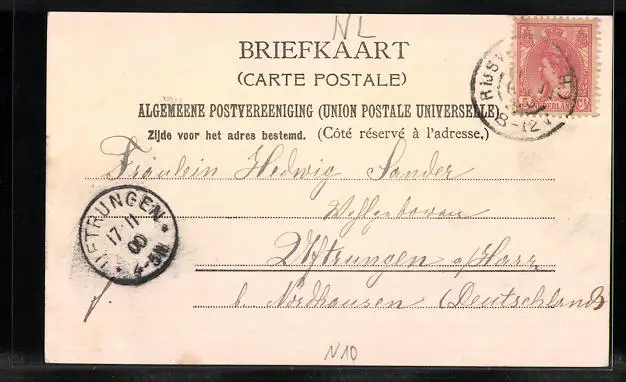 NL
BRIEFKAART
(CARTE POSTALE)
ALGEMEENE POSTVEREENIGING (UNION POSTALE UNIVERSELLE)
Zijde voor het adres bestemd. (Côté réservé à l'adresse.)
NEDERLAND
8-12V
Fräulein Hedwig Sander
Uftrungen a/Harz
b. Nordhausen (Deutschland)
UFTRUNGEN
17 11
00
4-5N
N10